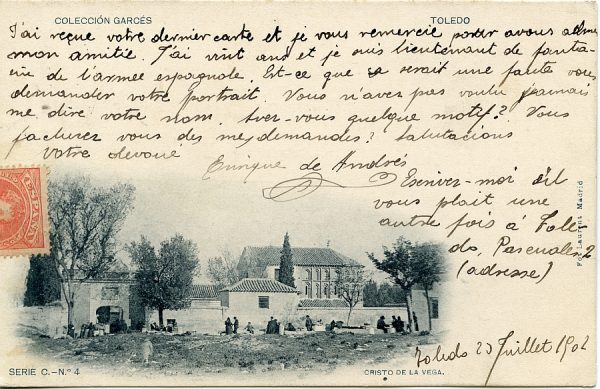 COLECCIÓN GARCÉS
TOLEDO
J'ai reçue votre dernier carte et je vous remercie avous
mon amitié. J'ai vint ans et je suis lieutenant de
de l'armée espagnole. Est-ce que sa serait une faute vous
demander votre portrait. Vous n'avez pas voulu jamais
me dire votre nom. Avez-vous quelque motif? Vous
vous des mes demandes? Salutacious
Votre devoué
Enrique de Andrés
Escrivez-moi s'il
vous plait une
autre fois á Tole
do, Pascuales 2
(adresse)
Fot. Laurent Madrid
Toledo 23 Juillet 1902
SERIE C.-N.º 4
CRISTO DE LA VEGA.